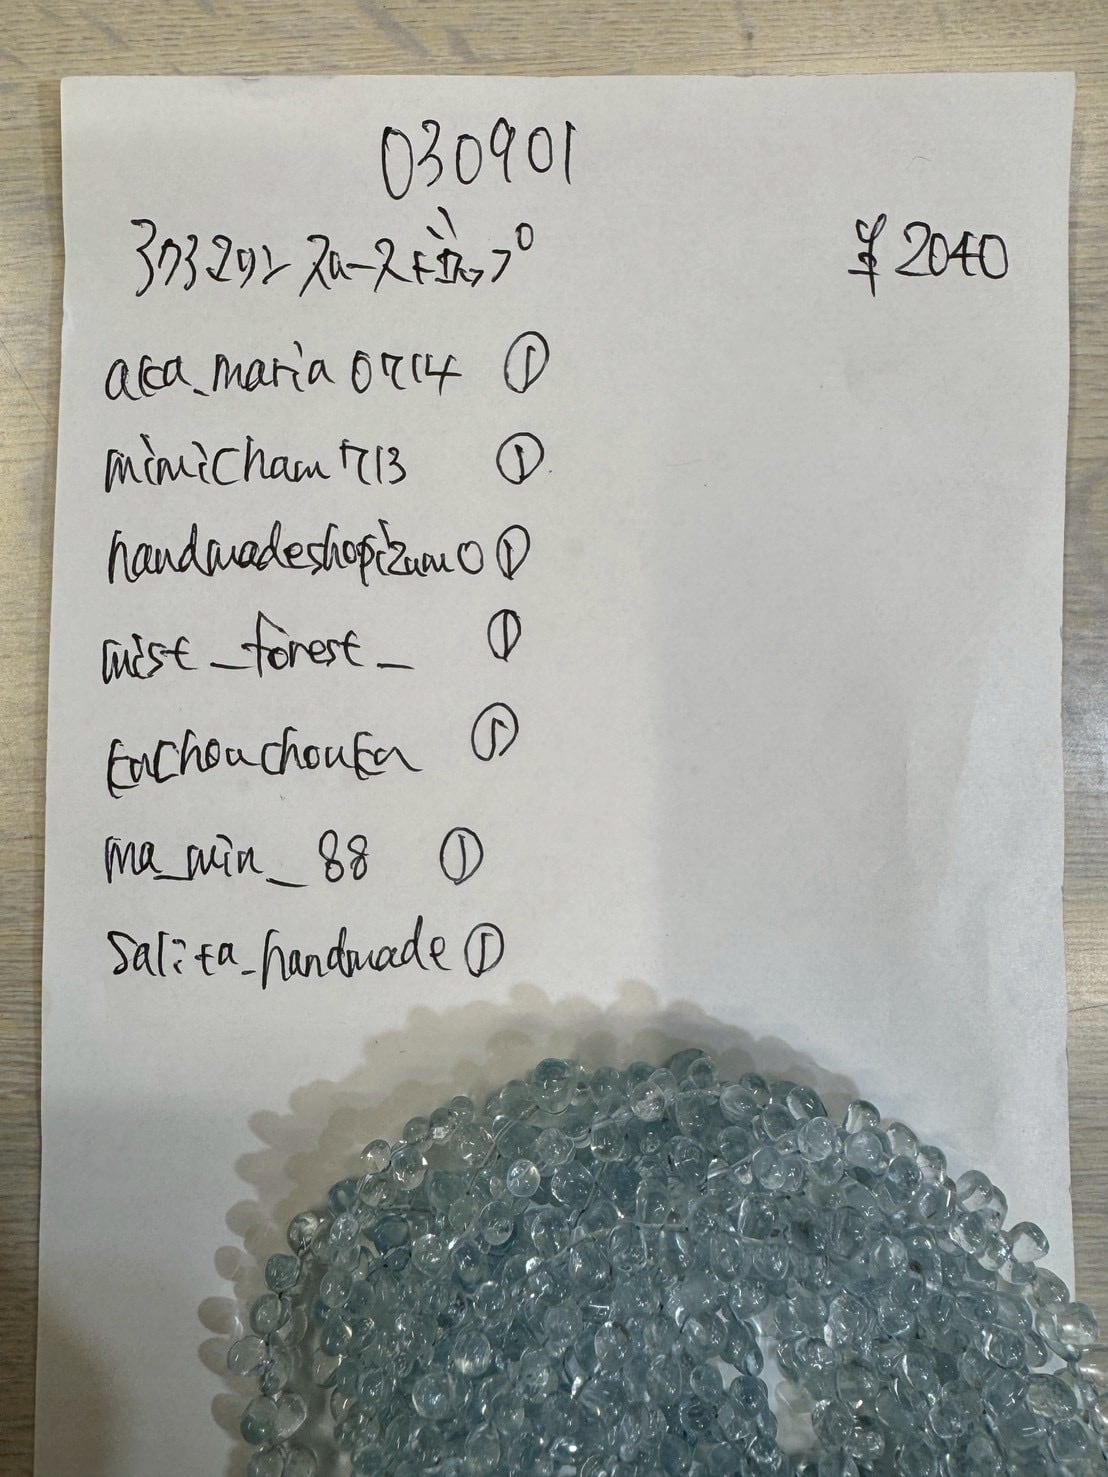 030901
アクアマリン スムースドロップ ¥2040
aka_maria0714 ①
mimicham713 ①
handmadeshopizumo ①
mist_forest_ ①
kachouchouka ①
ma_min_88 ①
salita_handmade ①